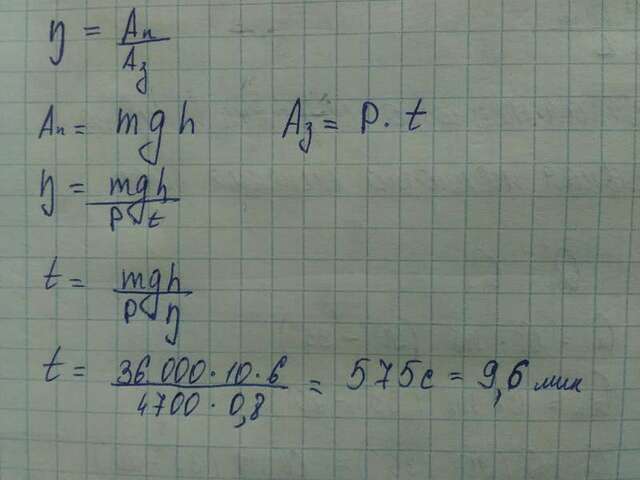 η = Aп / Aз
Aп = mgh Aз = P · t
η = mgh / P t
t = mgh / P η
t = 36 000 · 10 · 6 / 4700 · 0,8 = 575с = 9,6 мин